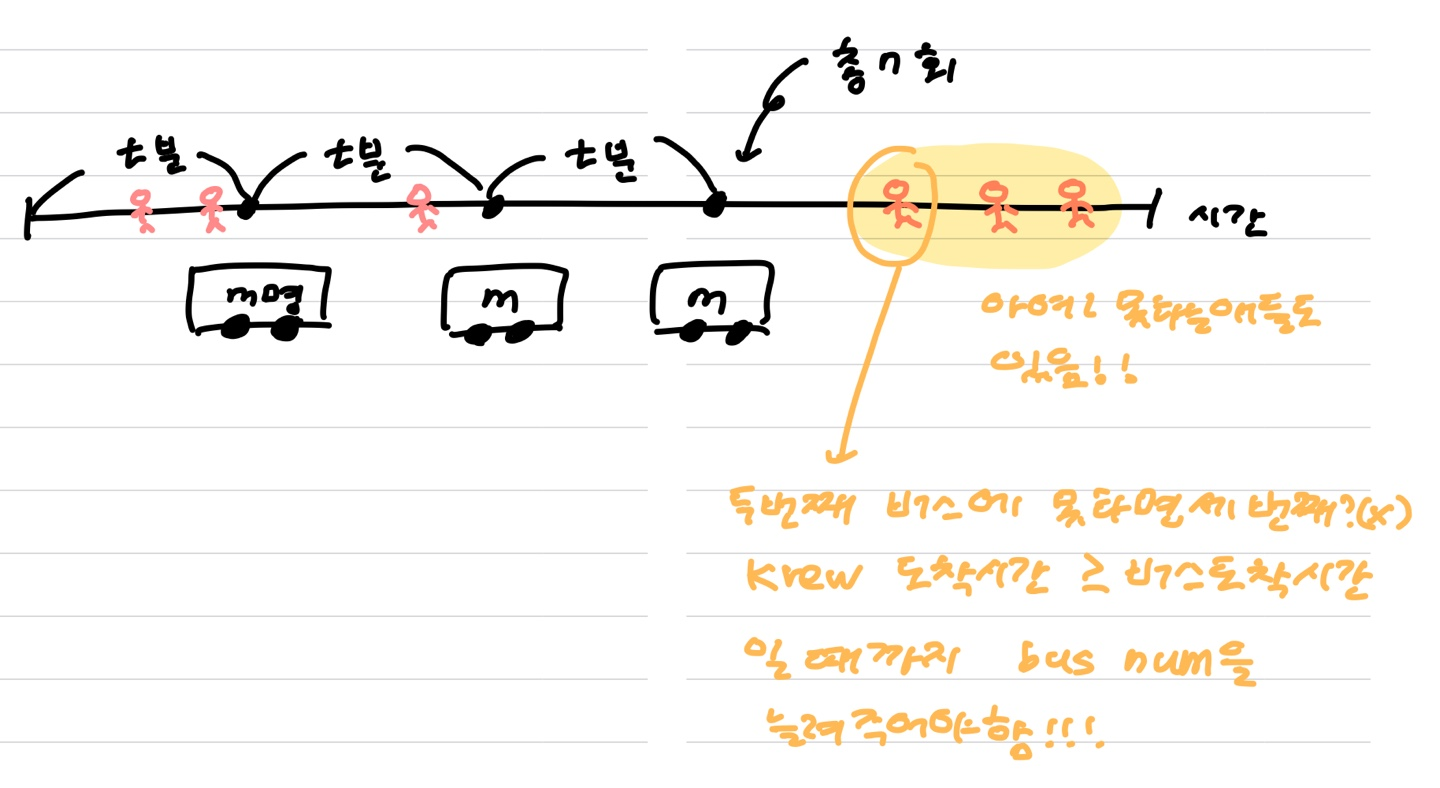 총 n 회
t분 t분 t분
시간
m명 m m
아예 못타는애들도
있음!!
두번째 버스에 못타면 세번째?(x)
krew 도착시간 ≥ 버스도착시간
일 때까지 bus num을
늘려주어야함!!!